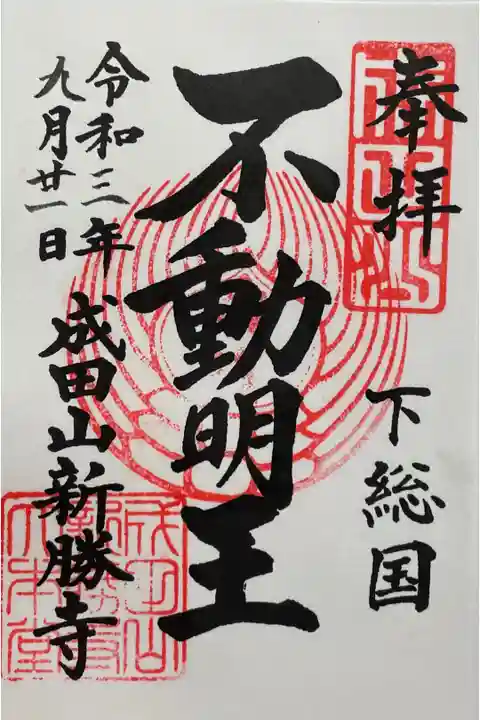 奉拝
下総国
不動明王
令和三年
九月廿一日
成田山新勝寺